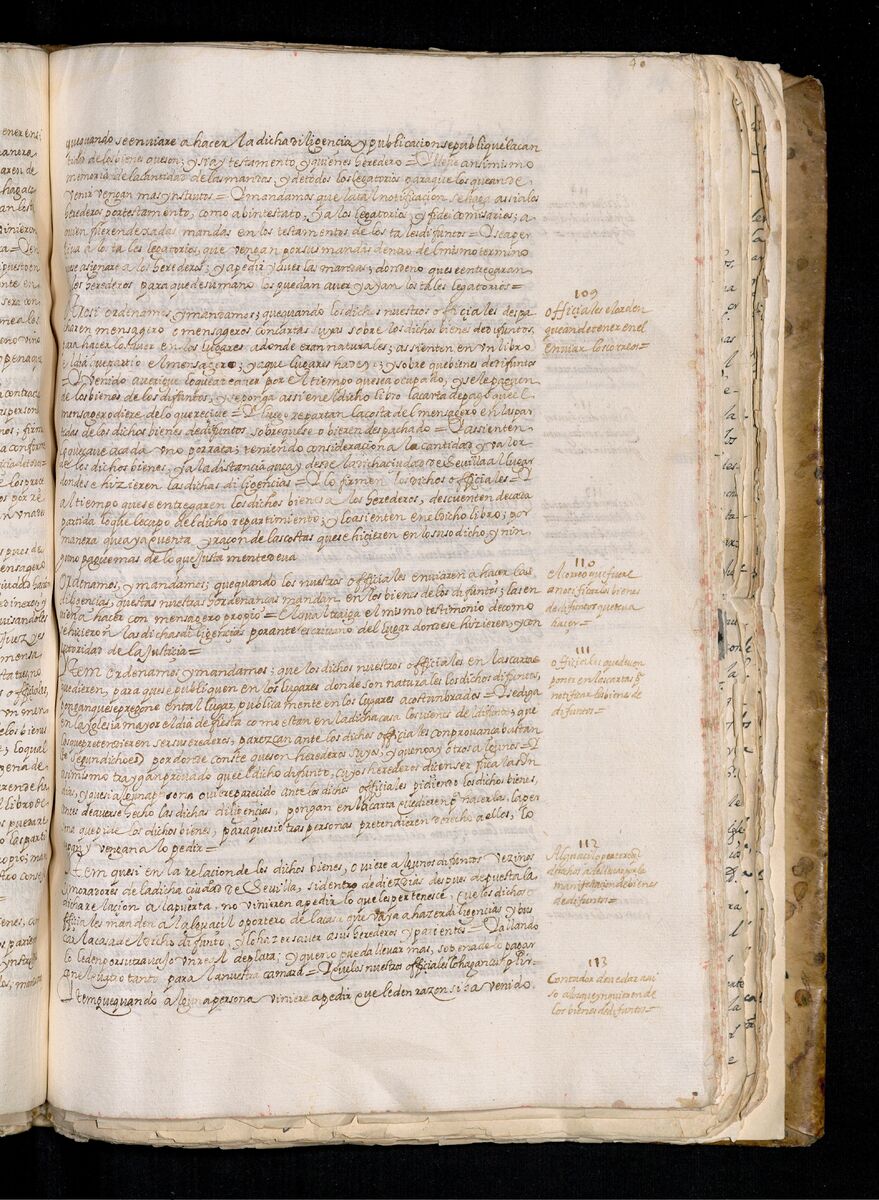 40
que quando se enviare a hacer la dicha diligencia y publicacion se publique la can
tidad de los bienes que son; y si ay testamento, y quien es heredero = Y tiene ansimismo
memoria de la cantidad de las mandas, y de todos los legatorios para que los que an de
venir vengan mas ynstantos = Y mandamos que la tal notificacion se haga assi a los
herederos por testamento, como abintestato, y a los legatorios; y fideicomisarios; a
quien fueren dexadas mandas en los testamentos de los tales difuntos = Y se aper
civa a los tales legatorios, que vengan por sus mandas dentro del mismo termino
que asignare a los herederos; y a pedir y aver las mandas; donde no que se entregaran
los herederos para que de su mano los puedan aver y ayan los tales legatorios =
Otrosi ordenamos, y mandamos; que quando los dichos nuestros officiales despa
charen mensagero o mensageros con cartas suyas sobre los dichos bienes de difuntos,
para hacerlo saver en los lugares a donde eran naturales; assienten en un libro
el dia que partio el mensagero; y a que lugares ha de yr; y sobre que bienes de difuntos
= Y venido averigue lo que a de aver por el tiempo que se a ocupado, y se le pague
de los bienes de los difuntos; y se ponga assi en el dicho libro la carta de pago que el
mensagero diere de lo que recive = Y luego repartan la costa del mensagero en las par
tidas de los dichos bienes de difuntos sobre que se obieren despachado = Y assienten
lo que cave a cada uno por rata; teniendo consideracion a la cantidad y valor
de los dichos bienes, y a la distancia que ay desde la dicha ciudad de Sevilla al lugar
donde se hizieren las dichas diligencias = Y lo firmen los dichos officiales = Y
al tiempo que se entregaren los dichos bienes a los herederos, descuenten de cada
partida lo que le cupo del dicho repartimiento; y lo assienten en el dicho libro; por
manera que aya cuenta y raçon de las costas que se hizieren en lo susodicho; y nin
guno pague mas de lo que justamente deva
Ordenamos, y mandamos; que quando los nuestros officiales enviaren a hacer las
diligencias, que estas nuestras hordenanzas mandan en los bienes de los difuntos; las en
vien a hacer con mensagero propio = El qual traiga el mismo testimonio de como
se hicieron las dichas diligencias por ante escrivano del lugar donde se hizieren, y con
autoridad de la Justicia =
Ytem ordenamos y mandamos; que los dichos nuestros officiales en las cartas
que dieren, para que se publiquen en los lugares donde son naturales los dichos difuntos,
pongan que se pregone en tal lugar, publicamente en los lugares acostumbrados = Y se diga
en la iglesia mayor el dia de fiesta como estan en la dicha casa los bienes del difunto; que
los que pretendieren ser sus herederos, parezcan ante los dichos officiales con provança bastan
te (segun dicho es) por donde conste que son herederos suyos, y que no ay otros algunos = Y
assimismo traygan provado que el dicho difunto, cuyos herederos dicen ser fue a las Yn
dias, y que si alguna persona oviere parecido ante los dichos officiales pidiendo los dichos bienes,
antes de averse hecho las dichas diligencias, pongan en la carta que dieren para hacerlas, la per
sona que pide los dichos bienes, para que si otras personas pretendieren derecho a ellos, lo
sepan y vengan a lo pedir =
Ytem que si en la relacion de los dichos bienes, oviere algunos difuntos vezinos
o moradores de la dicha ciudad de Sevilla, si dentro de diez dias despues de puesta la
dicha relaçion a la puerta, no vinieren a pedir lo que les pertenesce; que los dichos
officiales manden al alguacil o portero de la casa que vaya a hazer diligencias y bus
car la casa del dicho difunto, y lo haga saver a sus herederos y parientes = Y allando
lo le den por su travajo un real de plata; y que no pueda llevar mas, so pena de lo pagar
con el quatro tanto para la nuestra camara = Y que los nuestros officiales lo hagan cumplir =
Ytem que quando alguna persona viniere a pedir que le den razon si ha venido
109
officiales el orden
que an de tener en el
enviar los correos =
110
El correo que fuere
a notificar los bienes
de difuntos que ha
haçer =
111
officiales que deven
poner en las cartas para
notificar los bienes de
difuntos =
112
Alguacil o portero
derechos a de llevar por la
manifestacion de bienes
de difuntos =
113
Contador deve dar avi
so a los que vinieren de
los bienes de difuntos =